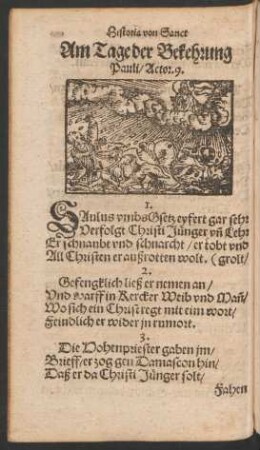 Historia von Sanct
Am Tage der Bekehrung
Pauli / Actor. 9.
1.
SAulus vmbs Gsetz eyfert gar sehr
Verfolgt Christi Jünger vñ Lehr
Er schnaubt vnd schnarcht / er tobt vnd
All Christen er außrotten wolt. (grolt /
2.
Gefengklich ließ er nemen an /
Vnd warff in Kercker Weib vnd Mañ /
Wo sich ein Christ regt mit eim wort /
Feindlich er wider jn rumort.
3.
Die Hohenpriester gaben jm /
Brieff / er zog gen Damascon hin /
Daß er da Christi Jünger solt /
Fahen